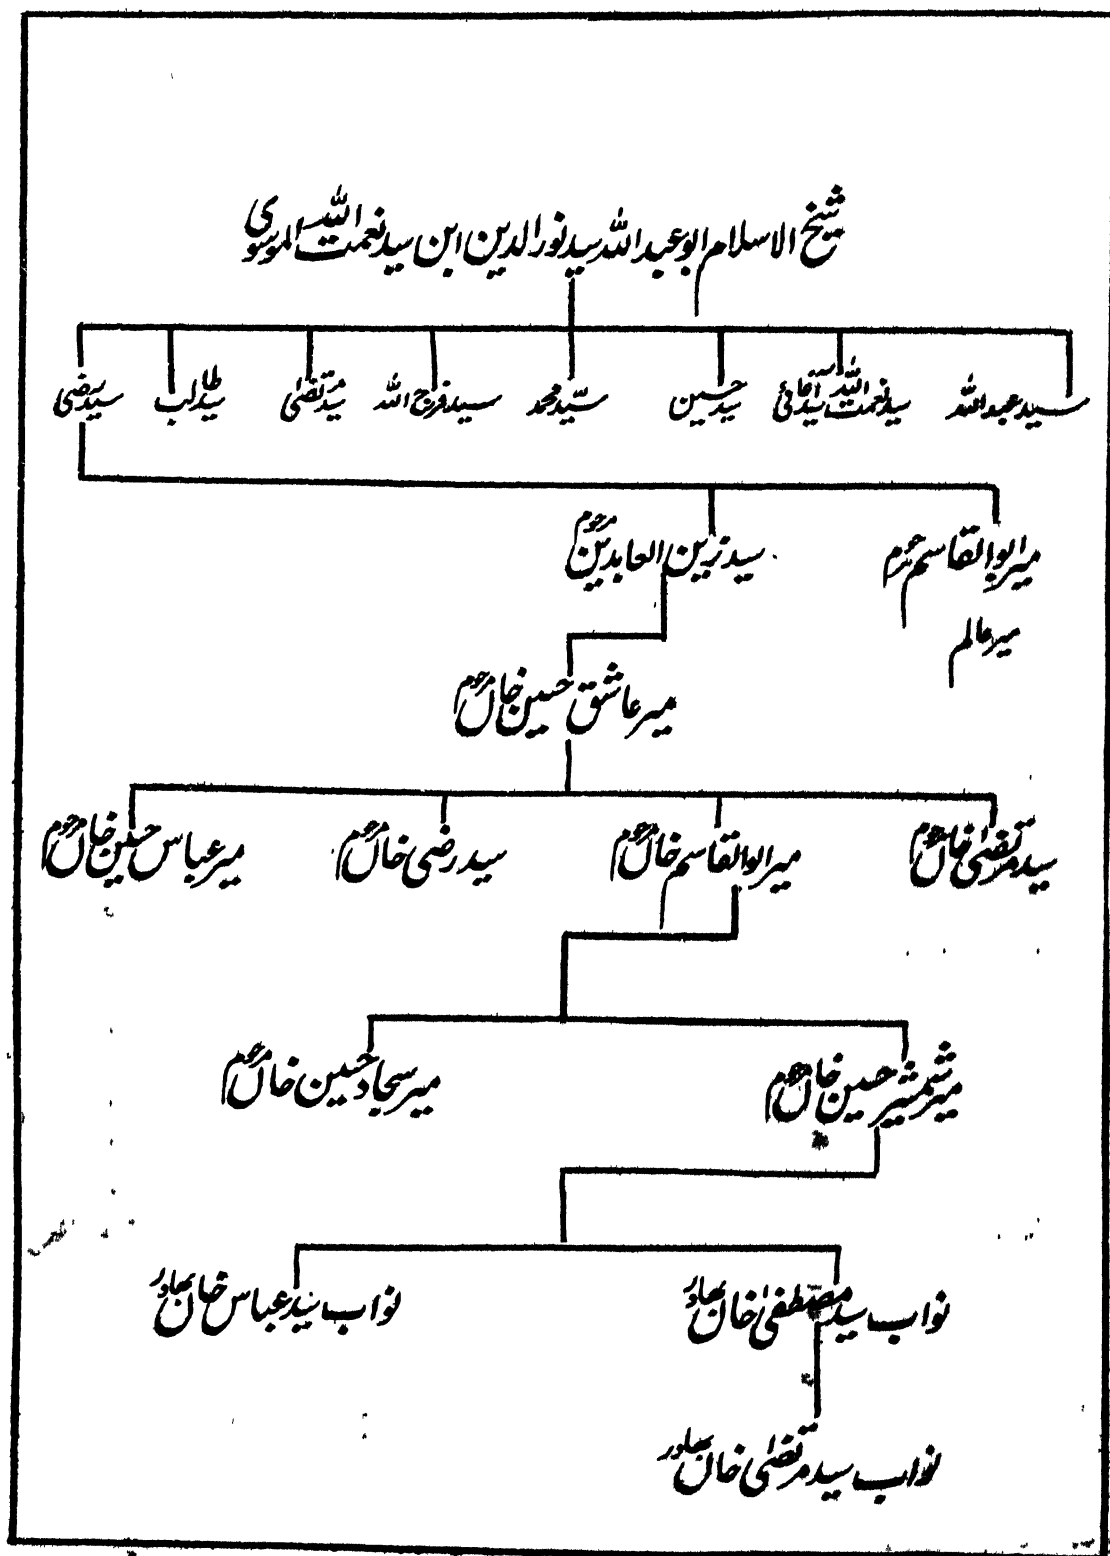 شیخ الاسلام ابو عبد الله سید نور الدین ابن سید نعمت الله الموسوی
سید عبد الله سید نعمت الله سید آقائی سید حسین سیّد محمد سید فرج الله سید مرتضیٰ سید طالب سید رضی
میر ابو القاسم مرحوم سید زین العابدین مرحوم
میر عالم
میر عاشق حسین خاں مرحوم
سید مرتضیٰ خاں مرحوم میر ابو القاسم خاں مرحوم سید رضی خاں مرحوم میر عباس حسین خاں مرحوم
میر شمشیر حسین خاں مرحوم میر سجاد حسین خاں مرحوم
نواب سید مصطفیٰ خان بهادر نواب سید عباس خان بهادر
نواب سید مرتضیٰ خان بهادر